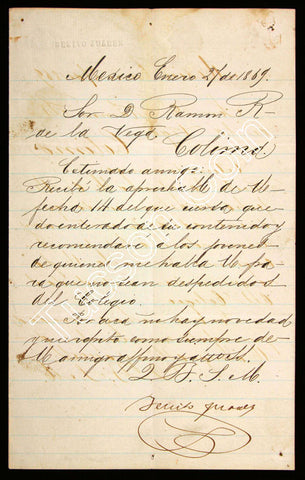 BENITO JUAREZ
Mexico Enero 27 de 1869.
Sor. D. Ramon R.
de la Vega.
Colima.
Estimado amigo:
Recibí la apreciable de U
fecha 14 del que cursa que
do enterado de su contenido y
recomendaré a los jovenes
de quienes me habla U pa
ra que no sean despedidos
del Colegio.
Por acá no hay novedad
y me repito como siempre de
U amigo affmo y atto S.
Q. B. S. M.
Benito Juarez